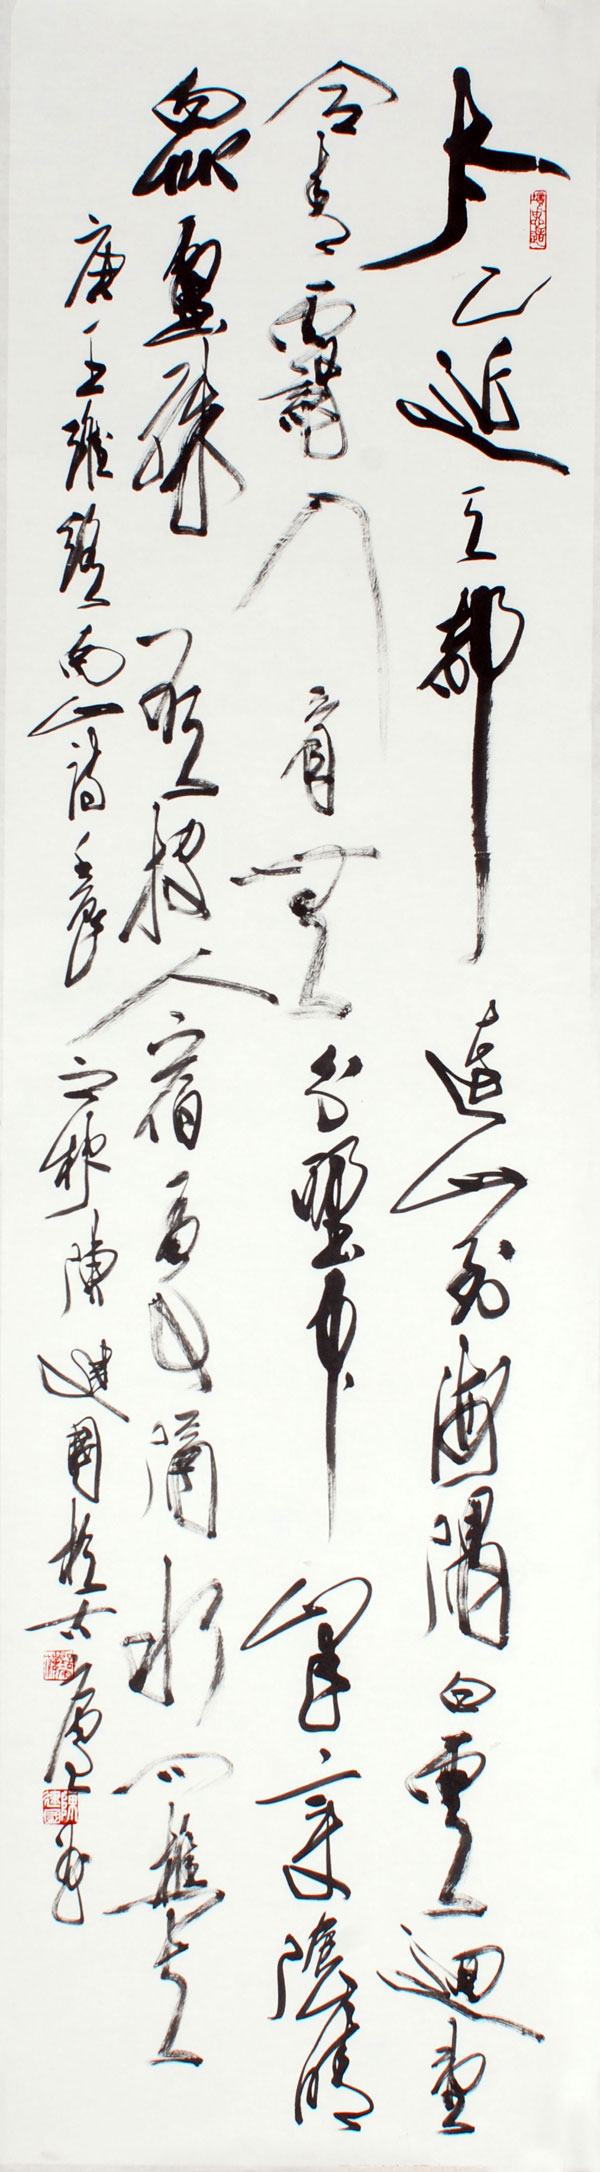 太乙近天都連山到海隅白雲迴望
合青靄入看無分野中峰變陰晴
衆壑殊欲投人宿處隔水問樵夫
唐王維終南山詩壬辰之秋陳建國於古廬